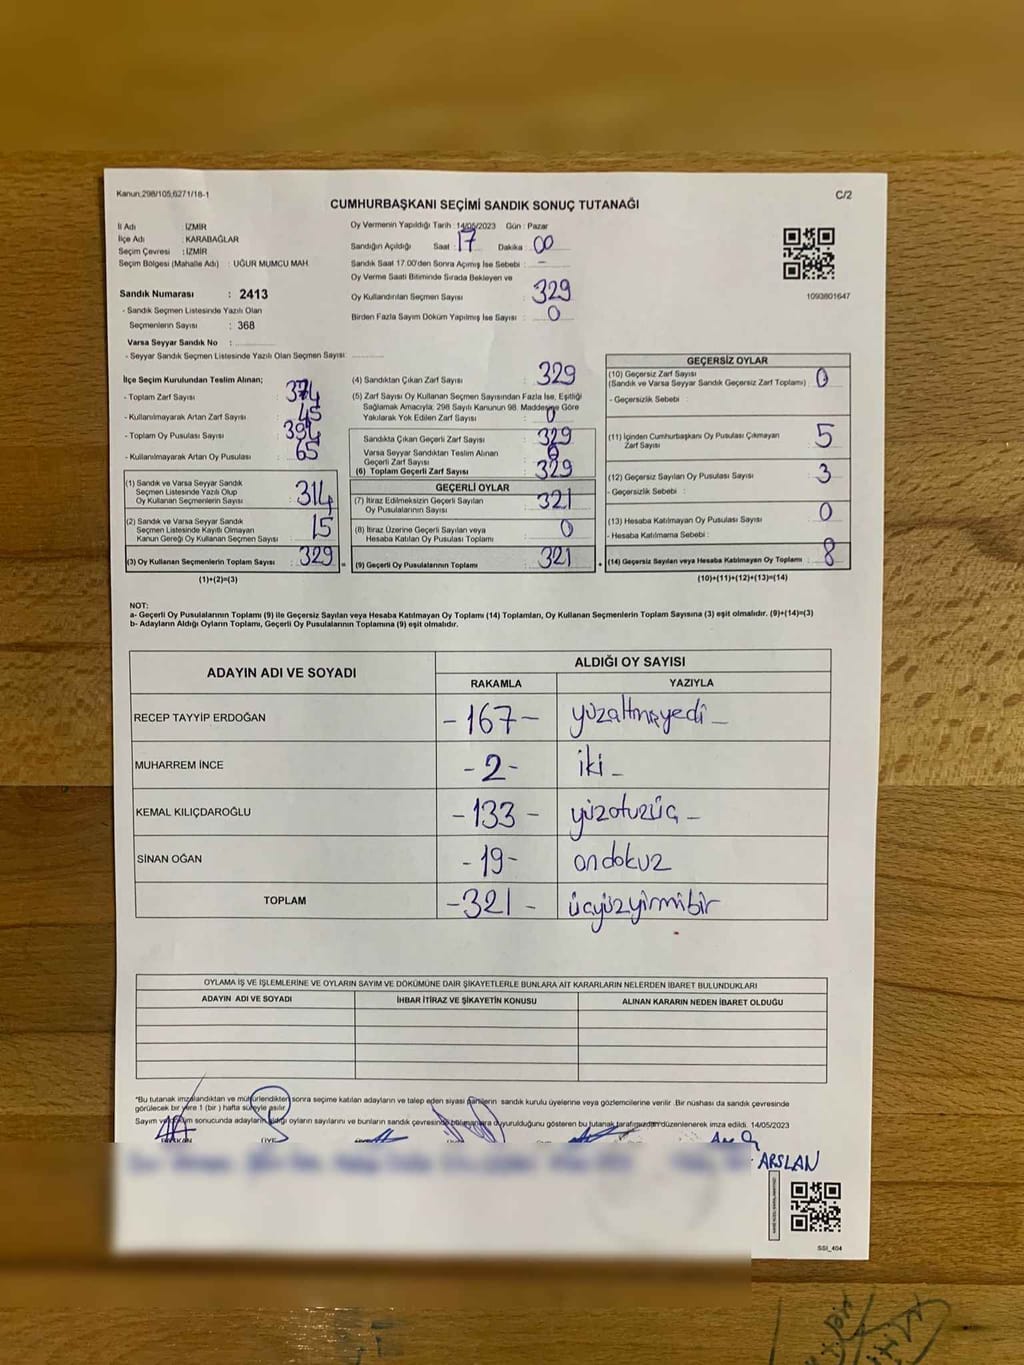 Kanun:298/105,6271/18-1
C/2
CUMHURBAŞKANI SEÇİMİ SANDIK SONUÇ TUTANAĞI
İl Adı : İZMİR
İlçe Adı : KARABAĞLAR
Seçim Çevresi : İZMİR
Seçim Bölgesi (Mahalle Adı) : UĞUR MUMCU MAH.
Sandık Numarası : 2413
- Sandık Seçmen Listesinde Yazılı Olan
Seçmenlerin Sayısı : 368
Varsa Seyyar Sandık No :
- Seyyar Sandık Seçmen Listesinde Yazılı Olan Seçmen Sayısı:
Oy Vermenin Yapıldığı Tarih : 14/05/2023 Gün : Pazar
Sandığın Açıldığı Saat : 17 Dakika : 00
Sandık Saat 17.00'den Sonra Açımış İse Sebebi : -
Oy Verme Saati Bitiminde Sırada Bekleyen ve
Oy Kullandırılan Seçmen Sayısı : 329
Birden Fazla Sayım Döküm Yapılmış İse Sayısı : 0
1093801647
İlçe Seçim Kurulundan Teslim Alınan;
- Toplam Zarf Sayısı : 374
- Kullanılmayarak Artan Zarf Sayısı : 45
- Toplam Oy Pusulası Sayısı : 394
- Kullanılmayarak Artan Oy Pusulası : 65
(1) Sandık ve Varsa Seyyar Sandık
Seçmen Listesinde Yazılı Olup
Oy Kullanan Seçmenlerin Sayısı : 314
(2) Sandık ve Varsa Seyyar Sandık
Seçmen Listesinde Kayıtlı Olmayan
Kanun Gereği Oy Kullanan Seçmen Sayısı : 15
(3) Oy Kullanan Seçmenlerin Toplam Sayısı : 329
(1)+(2)=(3)
(4) Sandıktan Çıkan Zarf Sayısı : 329
(5) Zarf Sayısı Oy Kullanan Seçmen Sayısından Fazla İse, Eşitliği
Sağlamak Amacıyla; 298 Sayılı Kanunun 98. Maddesine Göre
Yakılarak Yok Edilen Zarf Sayısı : 0
Sandıkta Çıkan Geçerli Zarf Sayısı : 329
Varsa Seyyar Sandıktan Teslim Alınan
Geçerli Zarf Sayısı : 0
(6) Toplam Geçerli Zarf Sayısı : 329
GEÇERLİ OYLAR
(7) İtiraz Edilmeksizin Geçerli Sayılan
Oy Pusulalarının Sayısı : 321
(8) İtiraz Üzerine Geçerli Sayılan veya
Hesaba Katılan Oy Pusulası Toplamı : 0
(9) Geçerli Oy Pusulalarının Toplamı : 321
GEÇERSİZ OYLAR
(10) Geçersiz Zarf Sayısı
(Sandık ve Varsa Seyyar Sandık Geçersiz Zarf Toplamı) : 0
- Geçersizlik Sebebi :
(11) İçinden Cumhurbaşkanı Oy Pusulası Çıkmayan
Zarf Sayısı : 5
(12) Geçersiz Sayılan Oy Pusulası Sayısı : 3
- Geçersizlik Sebebi :
(13) Hesaba Katılmayan Oy Pusulası Sayısı : 0
- Hesaba Katılmama Sebebi :
(14) Geçersiz Sayılan veya Hesaba Katılmayan Oy Toplamı : 8
(10)+(11)+(12)+(13)=(14)
NOT:
a- Geçerli Oy Pusulalarının Toplamı (9) ile Geçersiz Sayılan veya Hesaba Katılmayan Oy Toplamı (14) Toplamları, Oy Kullanan Seçmenlerin Toplam Sayısına (3) eşit olmalıdır. (9)+(14)=(3)
b- Adayların Aldığı Oyların Toplamı, Geçerli Oy Pusulalarının Toplamına (9) eşit olmalıdır.
ADAYIN ADI VE SOYADI
ALDIĞI OY SAYISI
RAKAMLA YAZIYLA
RECEP TAYYİP ERDOĞAN -167- yüzaltmışyedi -
MUHARREM İNCE -2- iki -
KEMAL KILIÇDAROĞLU -133- yüzotuzüç -
SİNAN OĞAN -19- ondokuz
TOPLAM -321- üçyüzyirmibir
OYLAMA İŞ VE İŞLEMLERİNE VE OYLARIN SAYIM VE DÖKÜMÜNE DAİR ŞİKAYETLERLE BUNLARA AİT KARARLARIN NELERDEN İBARET BULUNDUKLARI
ADAYIN ADI VE SOYADI İHBAR İTİRAZ VE ŞİKAYETİN KONUSU ALINAN KARARIN NEDEN İBARET OLDUĞU
*Bu tutanak imzalandıktan ve mühürlendikten sonra seçime katılan adayların ve talep eden siyasi partilerin sandık kurulu üyelerine veya gözlemcilerine verilir .Bir nüshası da sandık çevresinde
görülecek bir yere 1 (bir ) hafta süreyle asılır.
Sayım ve döküm sonucunda adayların aldığı oyların sayılarını ve bunların sandık çevresinde bulunanlara duyurulduğunu gösteren bu tutanak tarafımızdan düzenlenerek imza edildi. 14/05/2023
BAŞKAN ÜYE
ARSLAN
SSI_404